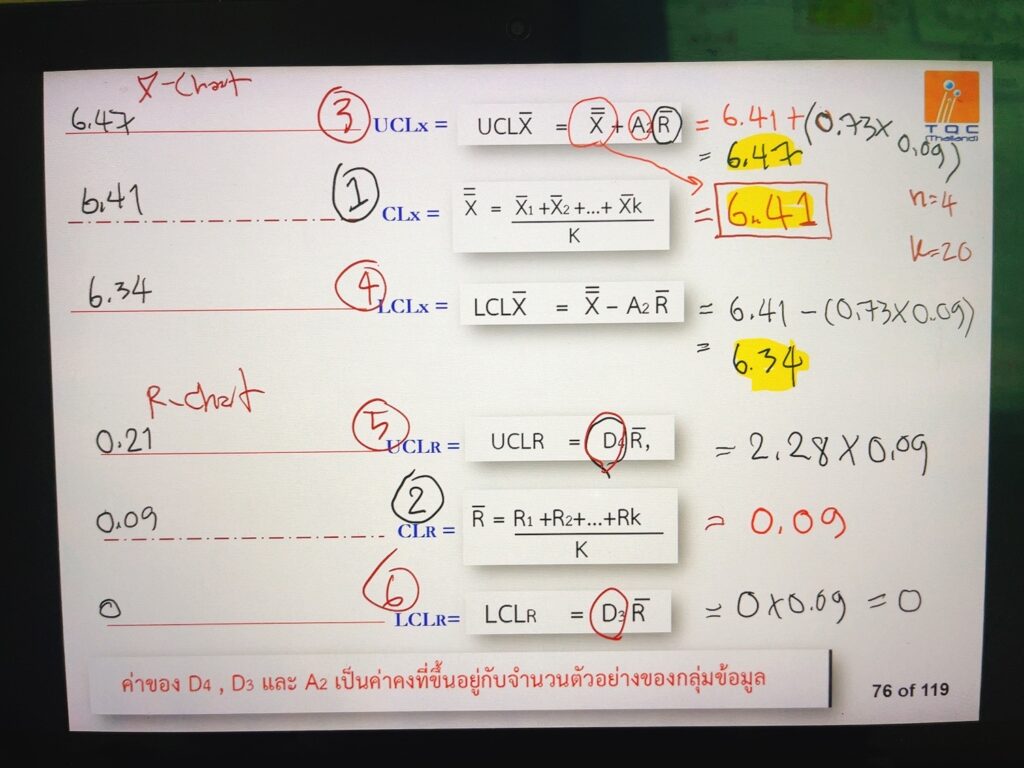 X-Chart
6.47 ③ UCLx = UCLX̄ = X̿ + A2 R̄ = 6.41 + (0.73 x 0.09)
= 6.47
TQC
(Thailand)
6.41 ① CLx = X̿ = X̄1 +X̄2 +...+ X̄k = 6.41
K
n=4
k=20
6.34 ④ LCLx = LCLX̄ = X̿ – A2 R̄ = 6.41 – (0.73 x 0.09)
= 6.34
R-Chart
0.21 ⑤ UCLR = UCLR = D4 R̄, = 2.28 x 0.09
0.09 ② CLR = R̄ = R1 +R2+...+Rk = 0.09
K
0 ⑥ LCLR= LCLR = D3 R̄ = 0 x 0.09 = 0
ค่าของ D4 , D3 และ A2 เป็นค่าคงที่ขึ้นอยู่กับจำนวนตัวอย่างของกลุ่มข้อมูล
76 of 119